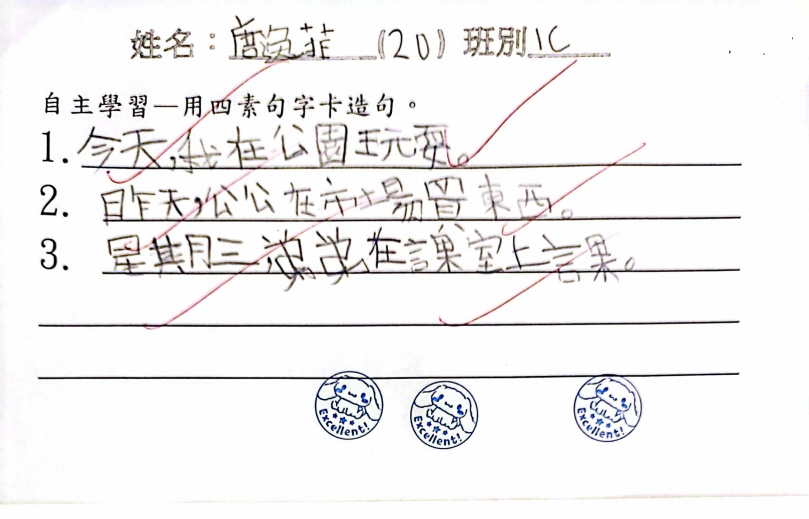 姓名：唐逸菲（20）班別1C
自主學習—用四素句字卡造句。
1. 今天,我在公園玩耍。
2. 昨天,公公在市場買東西。
3. 星其月三,爸爸在課室上課。
Excellent! Excellent! Excellent!